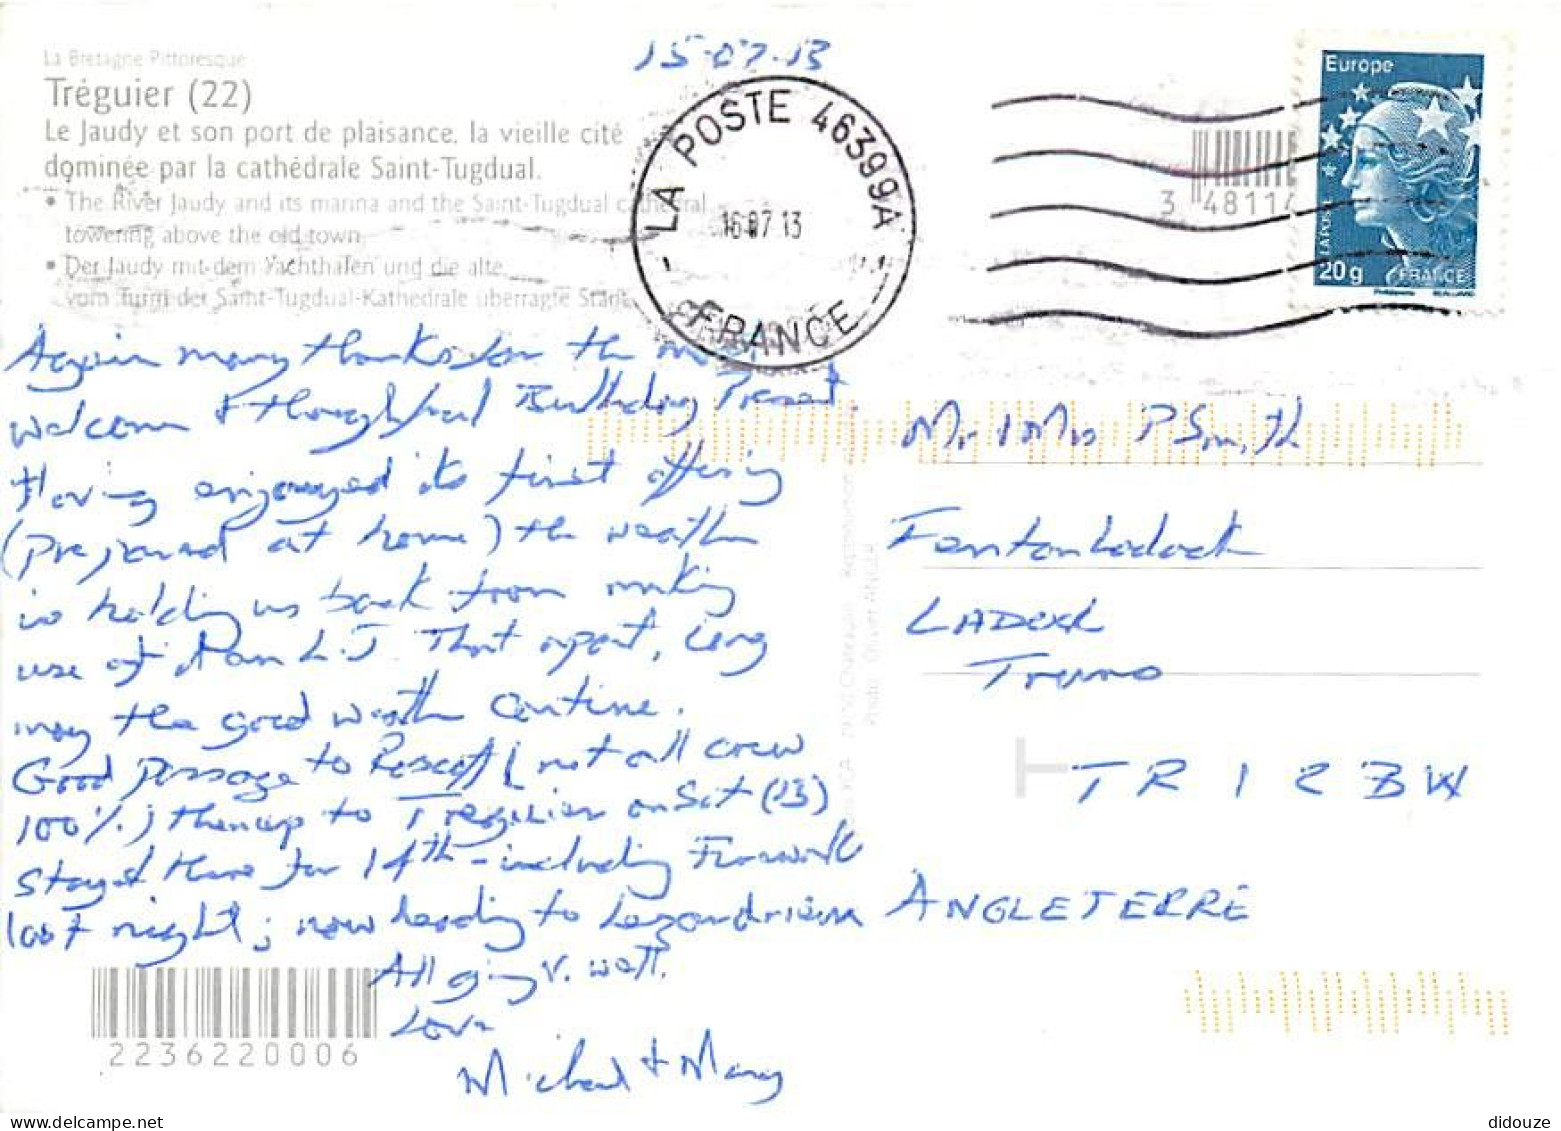 La Bretagne Pittoresque
Tréguier (22)
Le Jaudy et son port de plaisance, la vieille cité
dominée par la cathédrale Saint-Tugdual.
• The River Jaudy and its marina and the Saint-Tugdual cathedral
towering above the old town.
• Der Jaudy mit dem Yachthafen und die alte,
vom Turm der Saint-Tugdual-Kathedrale überragte Stadt
15-07-13
LA POSTE 46399A
16 07 13
FRANCE
3 48114
Europe
LA POSTE
20g FRANCE
Again many thanks for the most
welcome & thoughtful Birthday Present.
Having enjoyed its first offering
(prepared at home) the weather
is holding us back from making
use of it on L.J. That apart, long
may the good weather continue.
Good passage to Roscoff (not all crew
100%) then up to Treguier on Sat (13)
Stayed there for 14th - including Fireworks
last night; now heading to Lezardrieux
All going v. well.
Love
Michael & Mary
Mr & Mrs P Smith
LADOCK
Truro
TR1 2BW
ANGLETERRE
2236220006
didouze